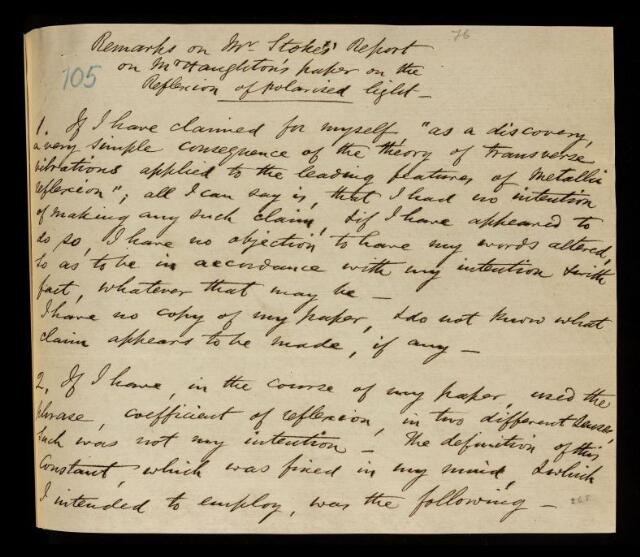 76
105
Remarks on Mr. Stokes' Report
on Mr Haughton's paper on the
Reflexion of polarised light —
1. If I have claimed for myself "as a discovery,
a very simple consequence of the theory of transverse
vibrations applied to the leading features of Metallic
reflexion"; all I can say is, that I had no intention
of making any such claim, & if I have appeared to
do so, I have no objection to have my words altered,
so as to be in accordance with my intention & with
fact, whatever that may be —
I have no copy of my paper, & do not know what
claim appears to be made, if any —
2. If I have, in the course of my paper, used the
phrase, coefficient of reflexion, in two different senses,
such was not my intention — The definition of this
Constant, which was fixed in my mind, & which
I intended to employ, was the following —